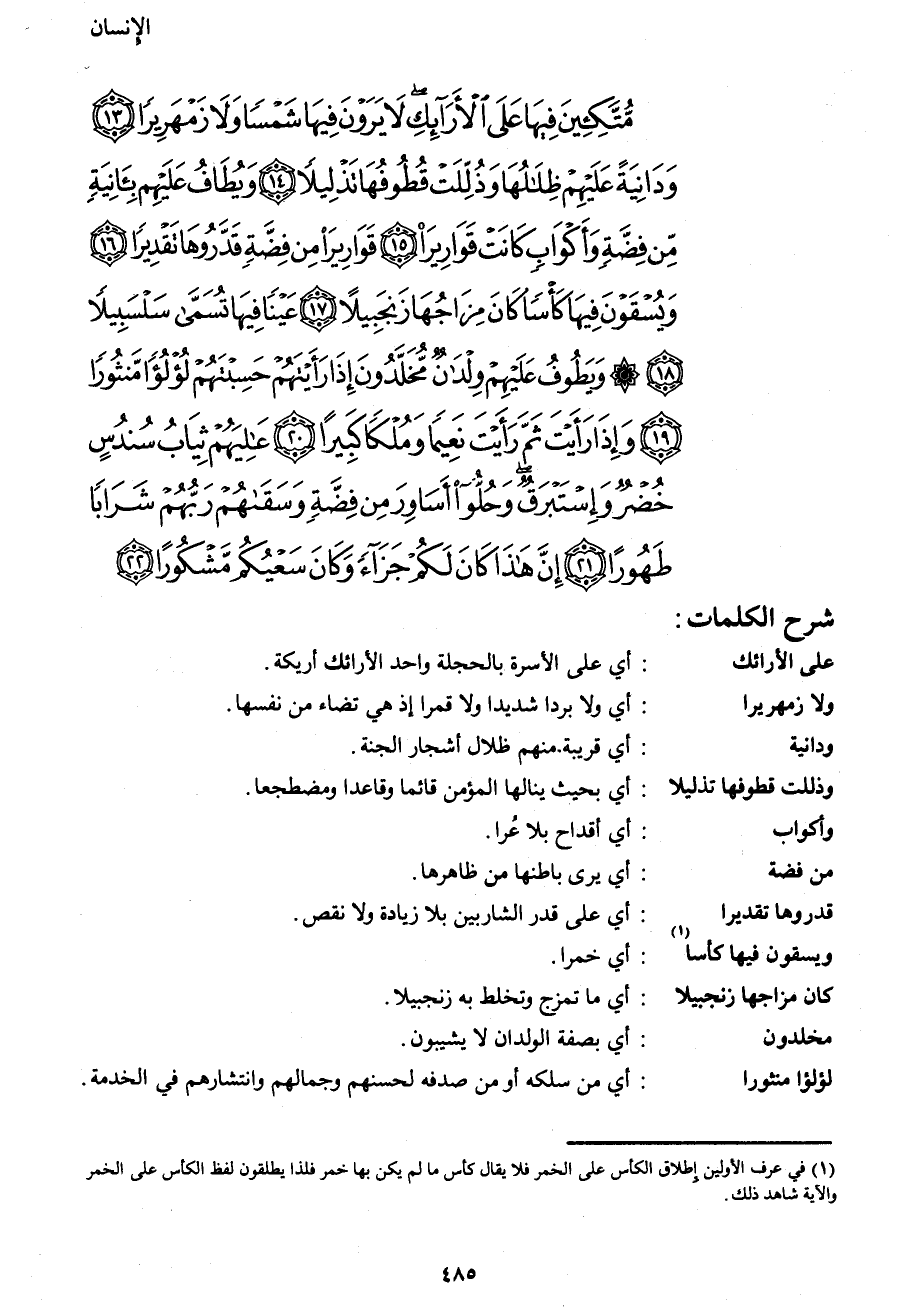 الإنسان
مُّتَّكِـِٔينَ فِيهَا عَلَى ٱلْأَرَآئِكِ ۖ لَا يَرَوْنَ فِيهَا شَمْسًا وَلَا زَمْهَرِيرًا ﴿١٣﴾
وَدَانِيَةً عَلَيْهِمْ ظِلَٰلُهَا وَذُلِّلَتْ قُطُوفُهَا تَذْلِيلًا ﴿١٤﴾ وَيُطَافُ عَلَيْهِم بِـَٔانِيَةٍ
مِّن فِضَّةٍ وَأَكْوَابٍ كَانَتْ قَوَارِيرَا۠ ﴿١٥﴾ قَوَارِيرَا۟ مِن فِضَّةٍ قَدَّرُوهَا تَقْدِيرًا ﴿١٦﴾
وَيُسْقَوْنَ فِيهَا كَأْسًا كَانَ مِزَاجُهَا زَنجَبِيلًا ﴿١٧﴾ عَيْنًا فِيهَا تُسَمَّىٰ سَلْسَبِيلًا
﴿١٨﴾ ۞ وَيَطُوفُ عَلَيْهِمْ وِلْدَٰنٌ مُّخَلَّدُونَ إِذَا رَأَيْتَهُمْ حَسِبْتَهُمْ لُؤْلُؤًا مَّنثُورًا
﴿١٩﴾ وَإِذَا رَأَيْتَ ثَمَّ رَأَيْتَ نَعِيمًا وَمُلْكًا كَبِيرًا ﴿٢٠﴾ عَٰلِيَهُمْ ثِيَابُ سُندُسٍ
خُضْرٌ وَإِسْتَبْرَقٌ ۖ وَحُلُّوٓا۟ أَسَاوِرَ مِن فِضَّةٍ وَسَقَىٰهُمْ رَبُّهُمْ شَرَابًا
طَهُورًا ﴿٢١﴾ إِنَّ هَٰذَا كَانَ لَكُمْ جَزَآءً وَكَانَ سَعْيُكُم مَّشْكُورًا ﴿٢٢﴾
شرح الكلمات :
على الأرائك : أي على الأسرة بالحجلة واحد الأرائك أريكة .
ولا زمهريرا : أي ولا بردا شديدا ولا قمرا إذ هي تضاء من نفسها .
ودانية : أي قريبة.منهم ظلال أشجار الجنة .
وذللت قطوفها تذليلا : أي بحيث ينالها المؤمن قائما وقاعدا ومضطجعا .
وأكواب : أي أقداح بلا عُرا .
من فضة : أي يرى باطنها من ظاهرها .
قدروها تقديرا : أي على قدر الشاربين بلا زيادة ولا نقص .
ويسقون فيها كأسا(١) : أي خمرا .
كان مزاجها زنجبيلا : أي ما تمزج وتخلط به زنجبيلا .
مخلدون : أي بصفة الولدان لا يشيبون .
لؤلؤا منثورا : أي من سلكه أو من صدفه لحسنهم وجمالهم وانتشارهم في الخدمة .
(١) في عرف الأولين إطلاق الكأس على الخمر فلا يقال كأس ما لم يكن بها خمر فلذا يطلقون لفظ الكأس على الخمر
والآية شاهد ذلك .
٤٨٥